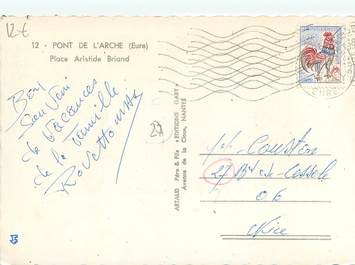 12 €
12 - PONT DE L'ARCHE (Eure)
Place Aristide Briand
Bon
Souvenir
de vacances
de la famille
27
ARTAUD Père & Fils "EDITIONS GABY"
Avenue de la Close, NANTES
27 Bd de
06
Nice